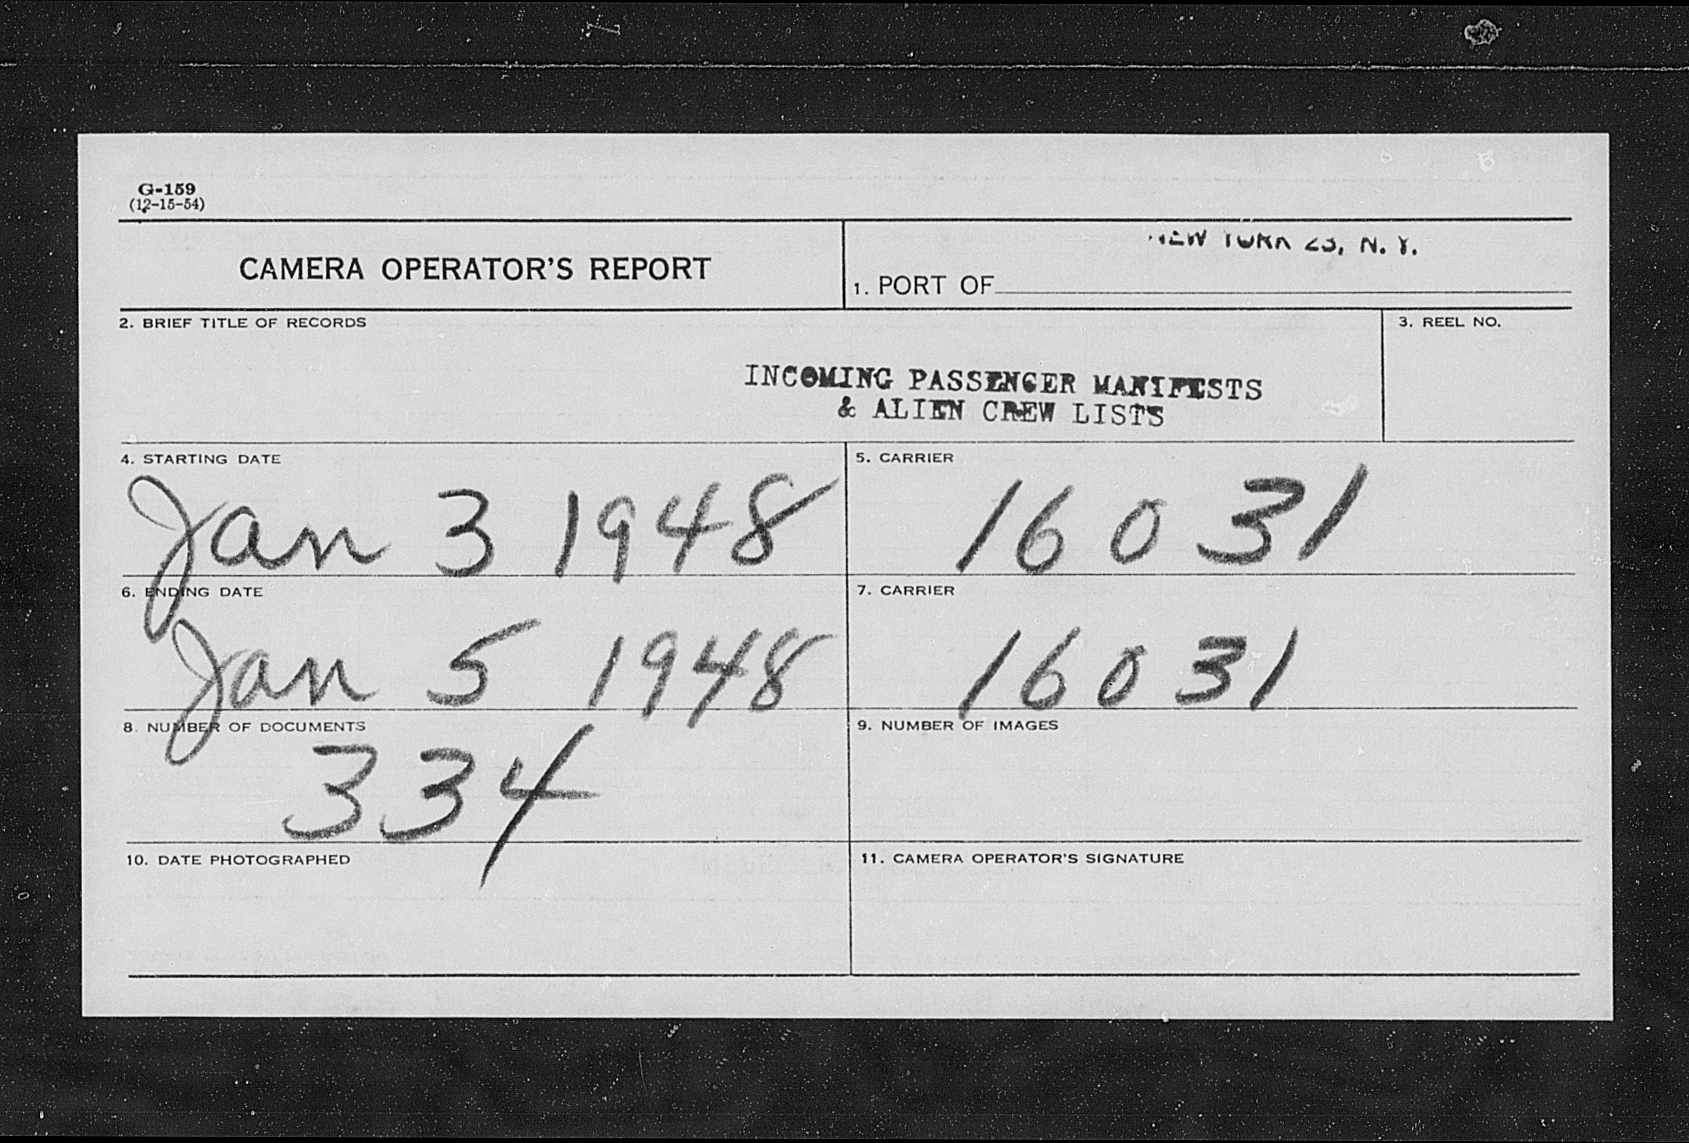 G-159
(12-15-54)
CAMERA OPERATOR'S REPORT
NEW YORK 23, N. Y.
1. PORT OF
2. BRIEF TITLE OF RECORDS
3. REEL NO.
INCOMING PASSENGER MANIFESTS
& ALIEN CREW LISTS
4. STARTING DATE
5. CARRIER
Jan 3 1948
16031
6. ENDING DATE
7. CARRIER
Jan 5 1948
16031
8. NUMBER OF DOCUMENTS
9. NUMBER OF IMAGES
334
10. DATE PHOTOGRAPHED
11. CAMERA OPERATOR'S SIGNATURE